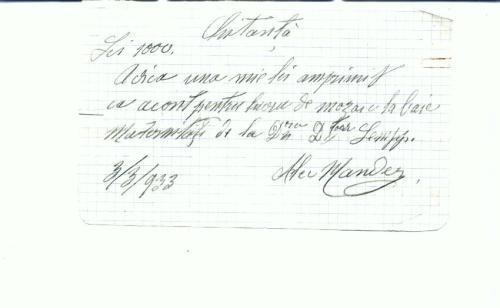 Chitanță
Lei 1000.
Adică una mie lei am primit
ca acont pentru lucru de mozaic la baie
Maternităței de la Dna Dtoar
3/3/933 Alec Mandez